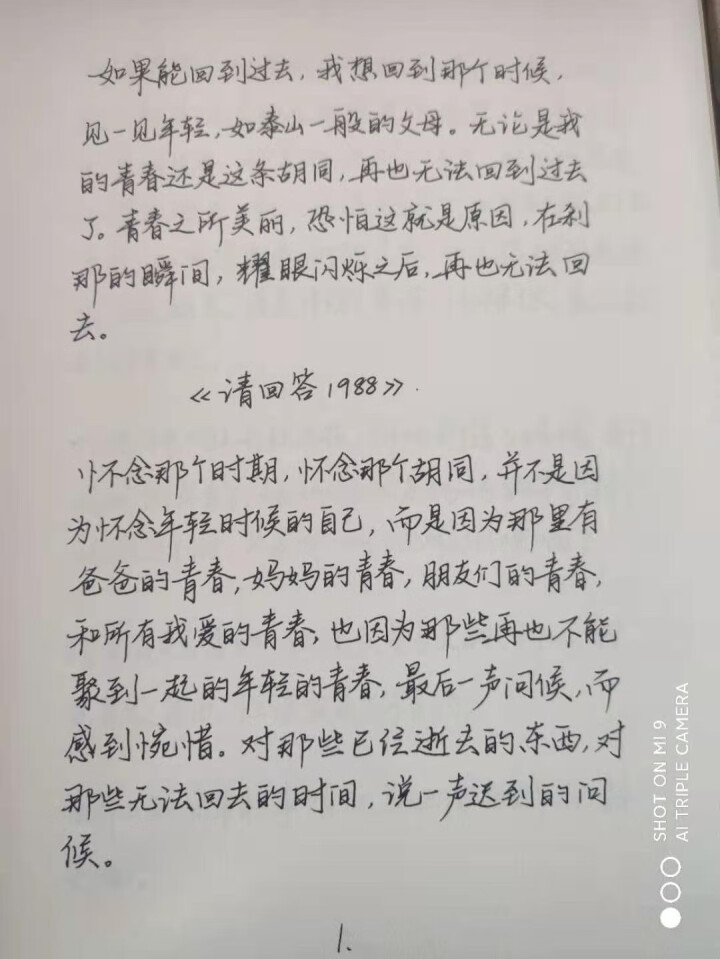 如果能回到过去，我想回到那个时候，
见一见年轻，如泰山一般的父母。无论是我
的青春还是这条胡同，再也无法回到过去
了。青春之所美丽，恐怕这就是原因，在刹
那的瞬间，耀眼闪烁之后，再也无法回
去。
《请回答1988》.
怀念那个时期，怀念那个胡同，并不是因
为怀念年轻时候的自己，而是因为那里有
爸爸的青春，妈妈的青春，朋友们的青春，
和所有我爱的青春，也因为那些再也不能
聚到一起的年轻的青春，最后一声问候，而
感到惋惜。对那些已经逝去的东西，对
那些无法回去的时间，说一声迟到的问
候。
1.
SHOT ON MI 9
AI TRIPLE CAMERA